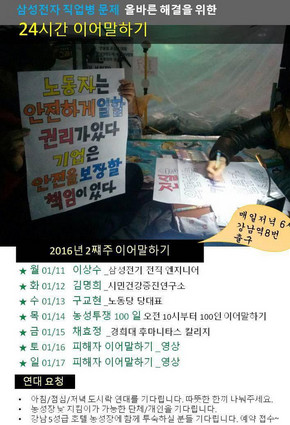 삼성전자 직업병 문제 올바른 해결을 위한
24시간 이어말하기
노동자는
안전하게 일할
권리가 있다
기업은
안전을 보장할
책임이 있다
매일저녁 6시
강남역8번
출구
2016년 2째주 이어말하기
★ 월 01/11 이상수 _삼성전기 전직 엔지니어
★ 화 01/12 김명희 _시민건강증진연구소
★ 수 01/13 구교현 _노동당 당대표
★ 목 01/14 농성투쟁 100 일 오전 10시부터 100인 이어말하기
★ 금 01/15 채효정 _경희대 후마니타스 칼리지
★ 토 01/16 피해자 이어말하기 _영상
★ 일 01/17 피해자 이어말하기 _영상
연대 요청
• 아침/점심/저녁 도시락 연대를 기다립니다. 따뜻한 한끼 나눠주세요.
• 농성장 낮 지킴이가 가능한 단체/개인을 기다립니다.
• 강남 5성급 호텔 농성장에 함께 투숙하실 분들 기다립니다. 예약 접수~